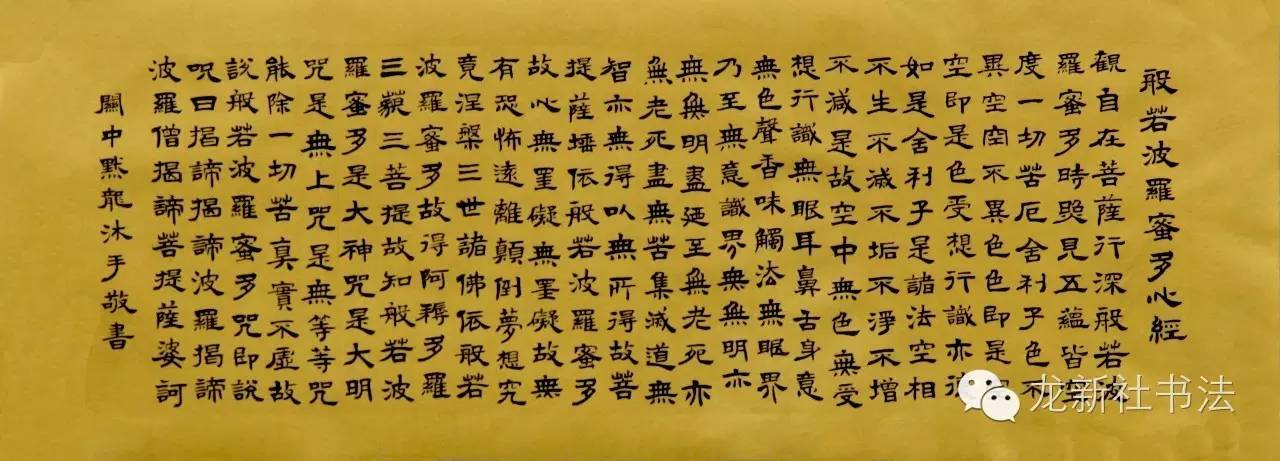 般若波羅蜜多心經
觀自在菩薩行深般若波
羅蜜多時照見五蘊皆空
度一切苦厄舍利子色不
異空空不異色色即是空
空即是色受想行識亦復
如是舍利子是諸法空相
不生不滅不垢不淨不增
不減是故空中無色無受
想行識無眼耳鼻舌身意
無色聲香味觸法無眼界
乃至無意識界無無明亦
無無明盡廼至無老死亦
無老死盡無苦集滅道無
智亦無得以無所得故菩
提薩埵依般若波羅蜜多
故心無罣礙無罣礙故無
有恐怖遠離顛倒夢想究
竟涅槃三世諸佛依般若
波羅蜜多故得阿耨多羅
三藐三菩提故知般若波
羅蜜多是大神咒是大明
咒是無上咒是無等等咒
能除一切苦真實不虛故
說般若波羅蜜多咒即說
呪曰揭諦揭諦波羅揭諦
波羅僧揭諦菩提薩婆訶
關中黙龍沐手敬書
龙新社书法